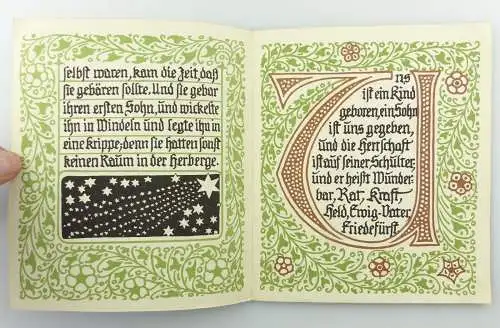 selbst waren, kam die Zeit, daß
sie gebären sollte. Und sie gebar
ihren ersten Sohn, und wickelte
ihn in Windeln und legte ihn in
eine Krippe; denn sie hatten sonst
keinen Raum in der Herberge.
Uns
ist ein Kind
geboren, ein Sohn
ist uns gegeben,
und die Herrschaft
ist auf seiner Schulter;
und er heißt Wunder-
bar, Rat, Kraft,
Held, Ewig-Vater
Friedefürst.